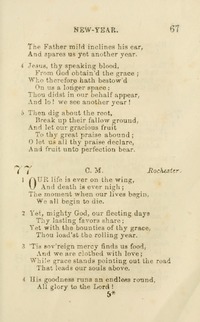 NEW-YEAR. 67
The Father mild inclines his ear,
And spares us yet another year.
4 Jesus, thy speaking blood,
From God obtain'd the grace;
Who therefore hath bestow'd
On us a longer space:
Thou didst in our behalf appear,
And lo! we see another year!
5 Then dig about the root,
Break up their fallow ground,
And let our gracious fruit
To thy great praise abound;
O let us all thy praise declare,
And fruit unto perfection bear.
77 C. M. Rochester.
1 OUR life is ever on the wing,
And death is ever nigh;
The moment when our lives begin,
We all begin to die.
2 Yet, mighty God, our fleeting days
Thy lasting favors share;
Yet with the bounties of thy grace,
Thou load'st the rolling year.
3 'Tis sov'reign mercy finds us food,
And we are clothed with love;
While grace stands pointing out the road
That leads our souls above.
4 His goodness runs an endless round,
All glory to the Lord!
5*